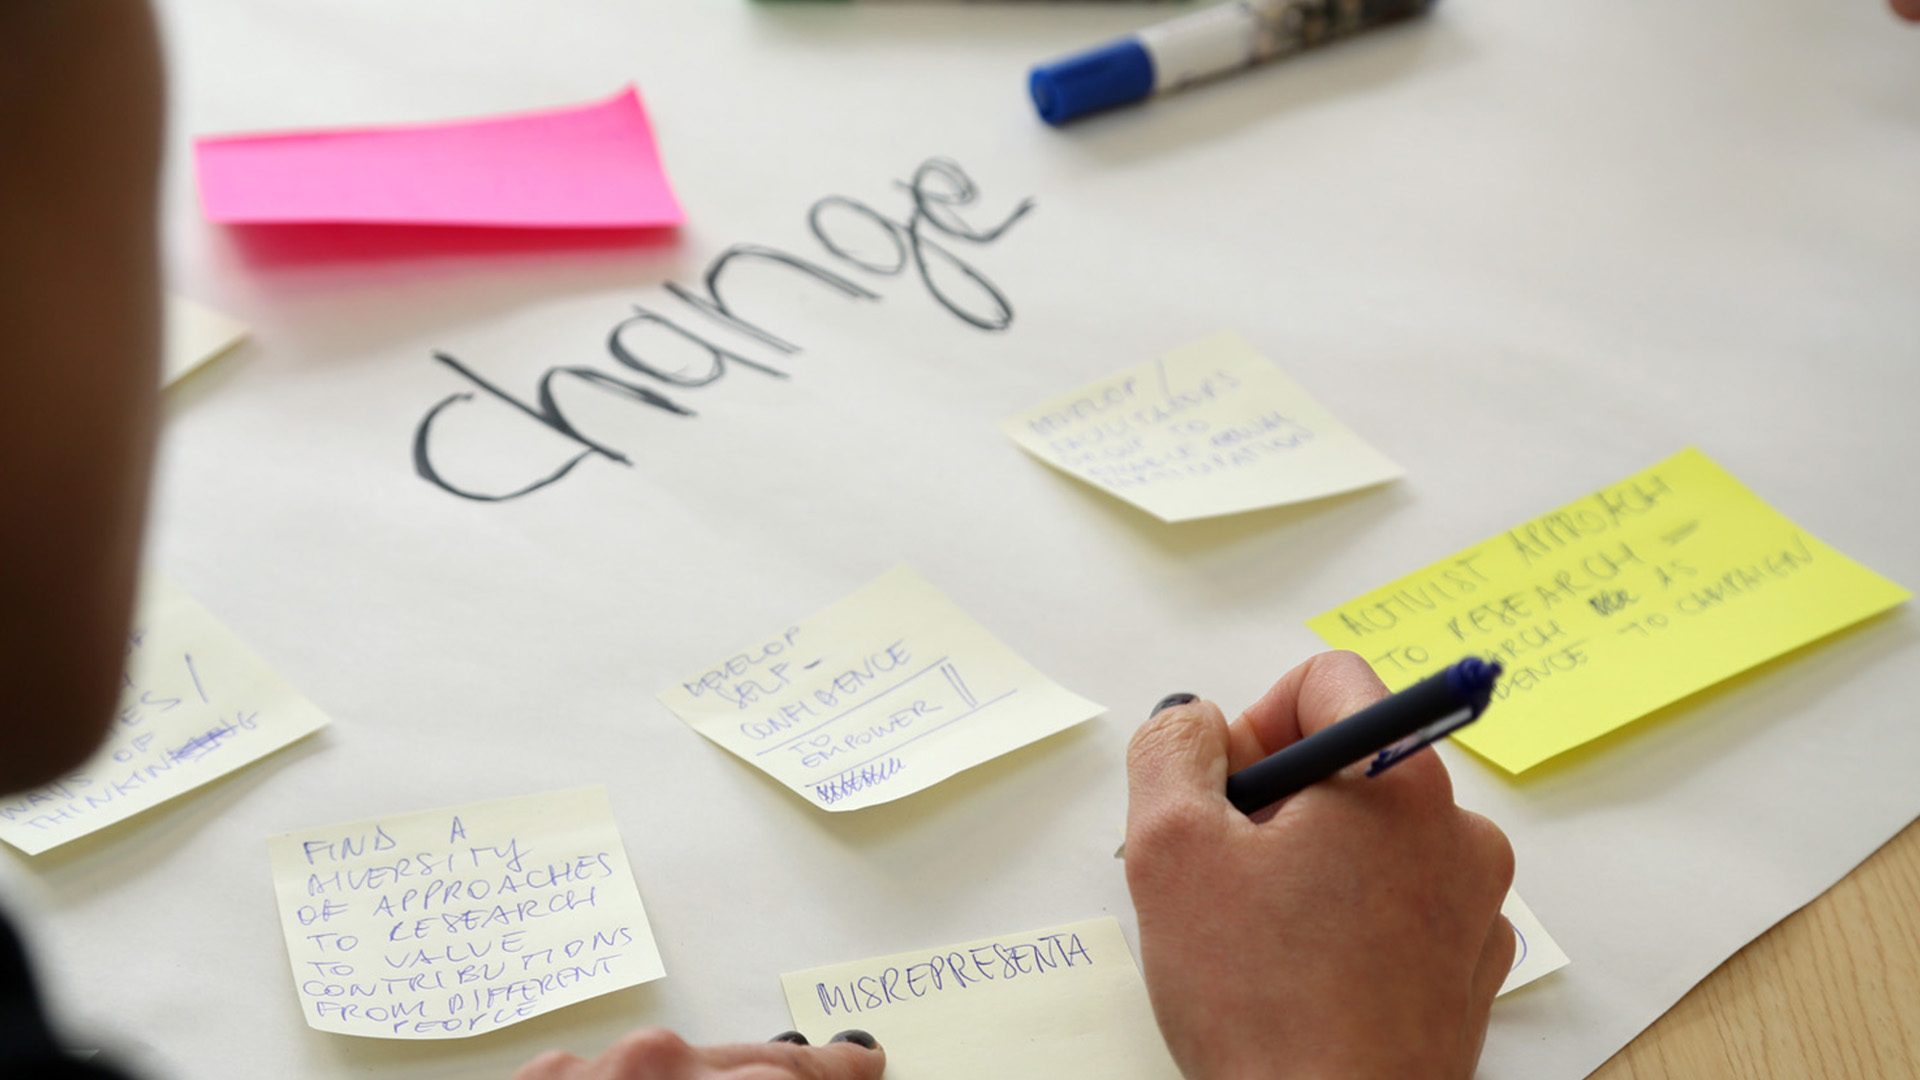 change
DEVELOP /
FACILITATORS
TO
ENABLE
ACTIVIST APPROACH
TO RESEARCH —
AS
TO CAMPAIGN
DEVELOP
SELF-
CONFIDENCE
TO
EMPOWER !!
WAYS OF
THINKING
FIND A
DIVERSITY
OF APPROACHES
TO RESEARCH
TO VALUE
CONTRIBUTIONS
FROM DIFFERENT
PEOPLE
MISREPRESENTA